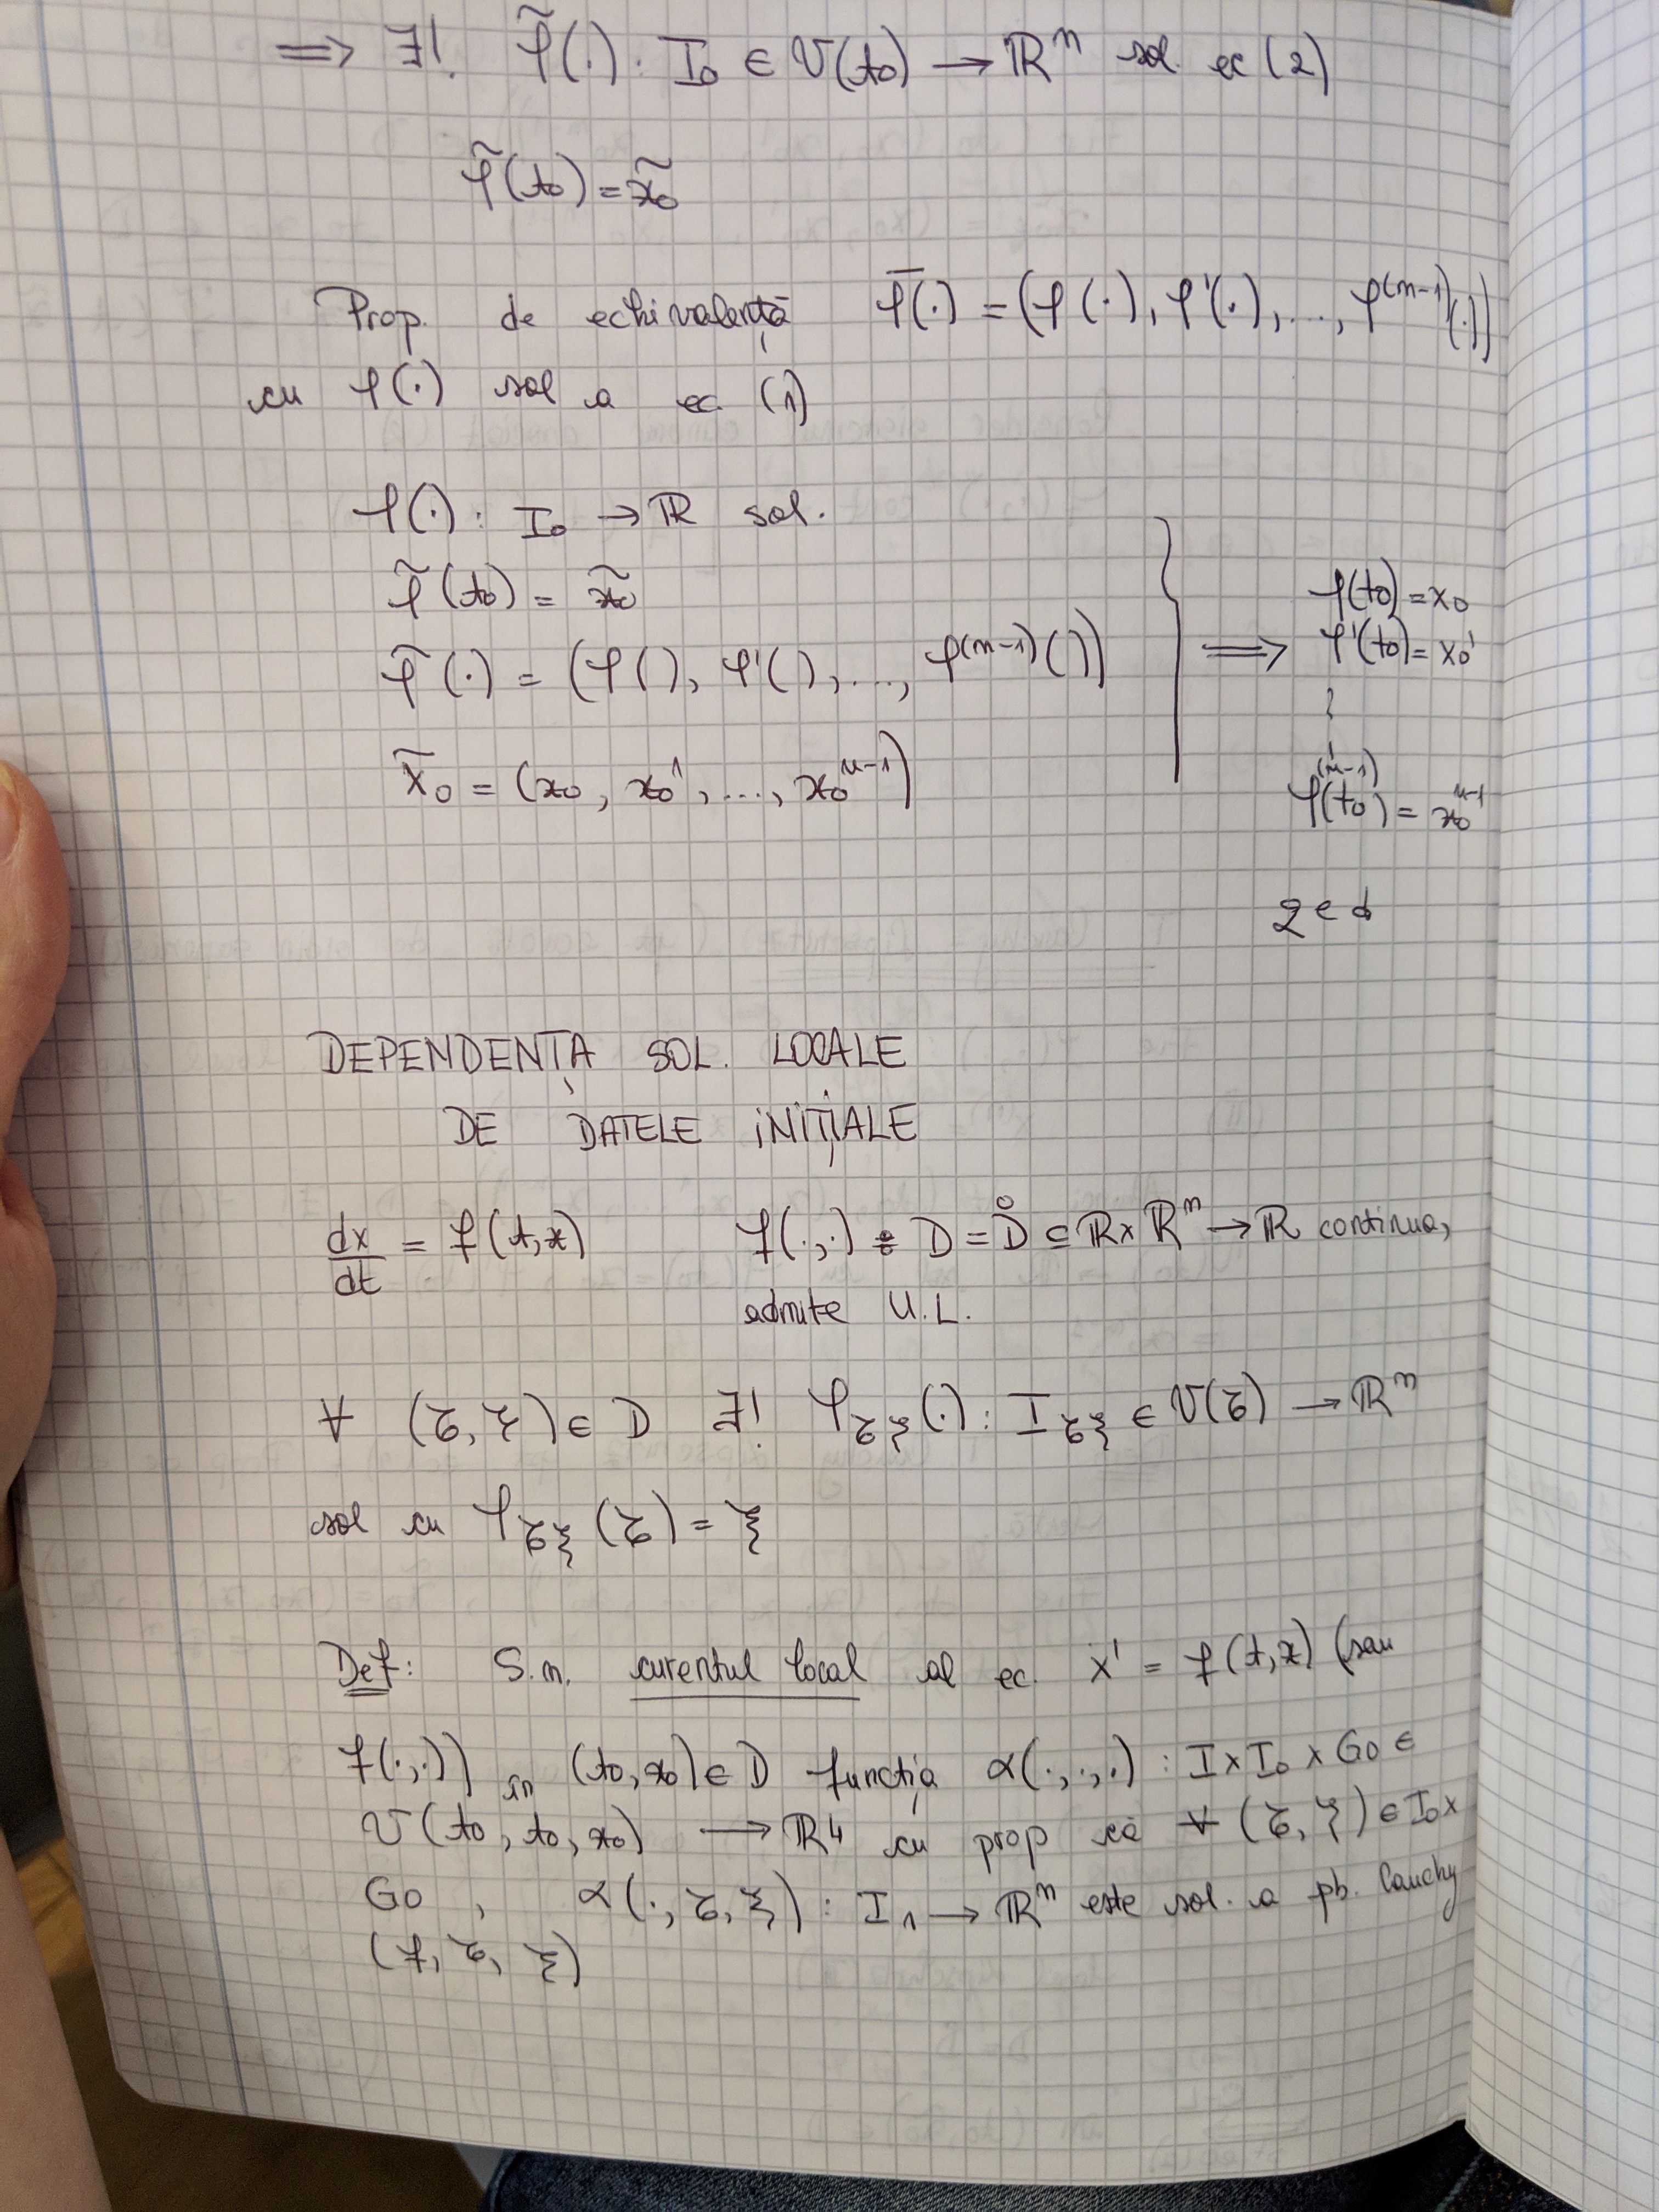 ⟹ ∃! φ̃(·): I₀ ∈ V(t₀) → ℝⁿ sol. ec (2)
φ̃(t₀) = x̃₀
Prop. de echivalență φ̅(·) = (φ(·), φ'(·), ..., φ⁽ⁿ⁻¹⁾(·))
cu φ(·) sol a ec. (1)
φ(·): I₀ → ℝ sol.
φ̃(t₀) = x̃₀
φ̃(·) = (φ(), φ'(), ..., φ⁽ⁿ⁻¹⁾())
x̃₀ = (x₀, x₀¹, ..., x₀ⁿ⁻¹)
} ⟹ φ(t₀) = x₀
φ'(t₀) = x₀¹
⋮
φ⁽ⁿ⁻¹⁾(t₀) = x₀ⁿ⁻¹
qed
DEPENDENȚA SOL. LOCALE
DE DATELE INIȚIALE
dx/dt = f(t,x) f(·,·) : D = D̊ ⊆ ℝ×ℝⁿ → ℝ continua,
admite U.L.
∀ (τ,ξ) ∈ D ∃! φ_τξ(·): I_τξ ∈ V(τ) → ℝⁿ
sol cu φ_τξ(τ) = ξ
Def: S.n. curentul local al ec. x' = f(t,x) (sau
f(·,·)) în (t₀,x₀) ∈ D funcția α(·,·,·) : I×I₀×G₀ ∈
V(t₀, t₀, x₀) → ℝ⁴ cu prop că ∀ (τ,ξ) ∈ I₀×
G₀, α(·,τ,ξ) : I₁ → ℝⁿ este sol. a pb. Cauchy
(f, τ, ξ)